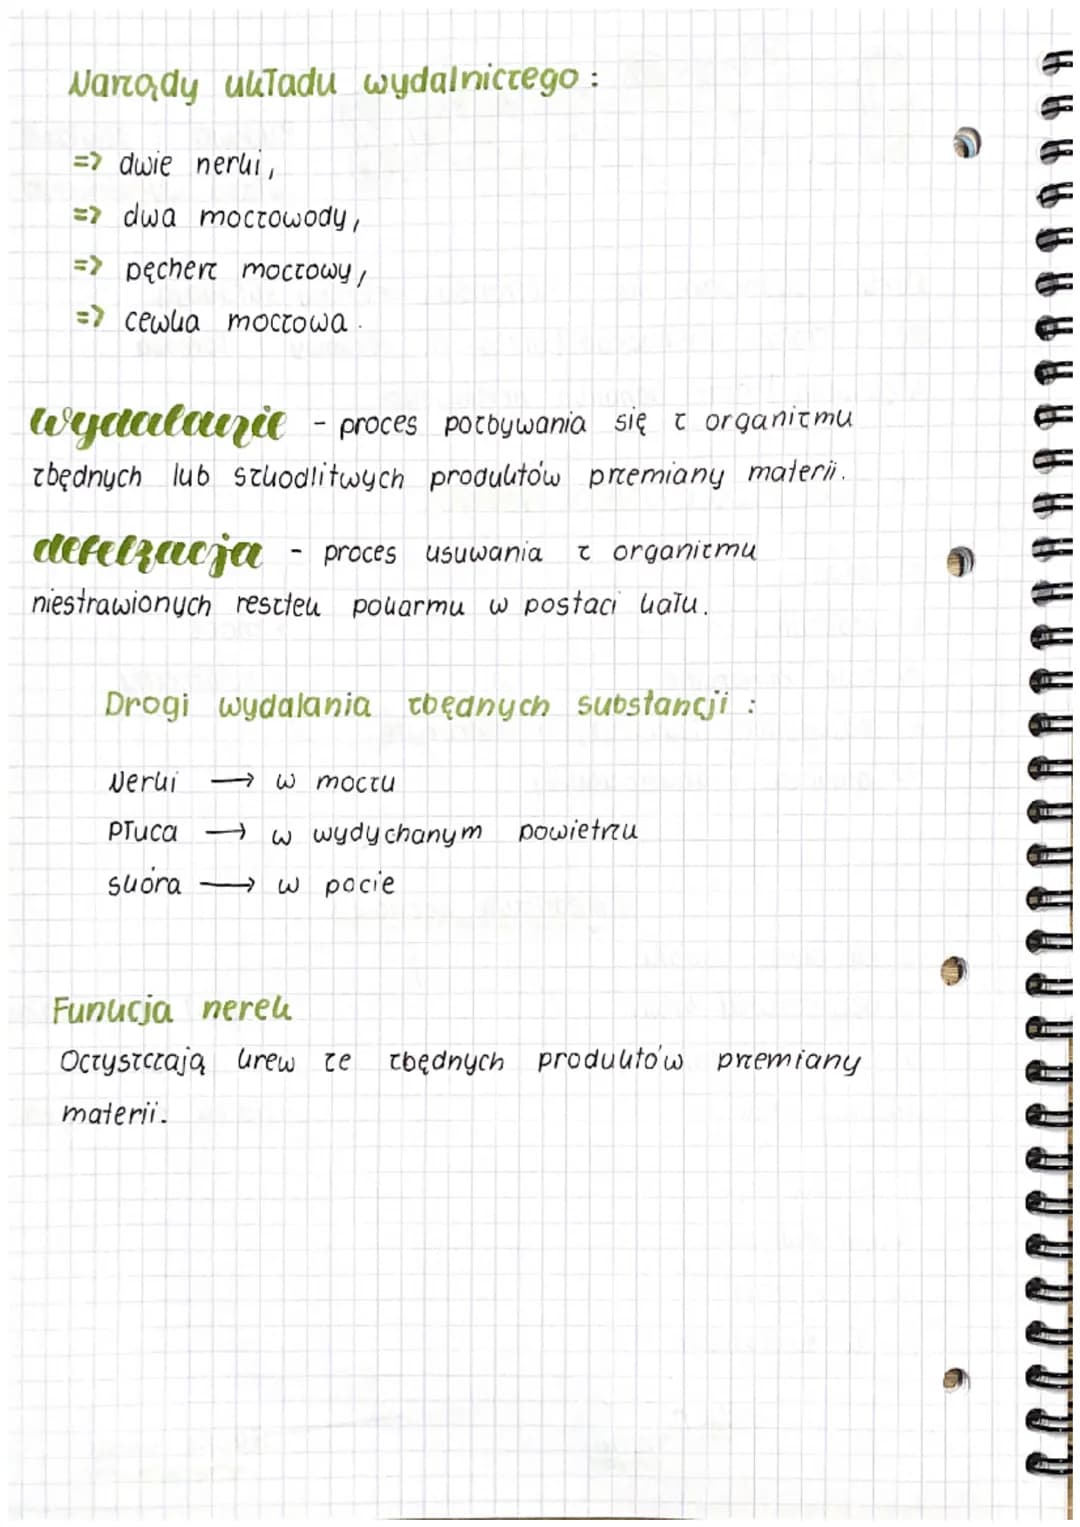 Narządy układu wydalniczego :
=> dwie nerki,
=> dwa moczowody,
=> pęcherz moczowy,
=> cewka moczowa.
wydalanie - proces pozbywania się z organizmu
zbędnych lub szkodlitwych produktów przemiany materii.
defekacja - proces usuwania z organizmu
niestrawionych resztek pokarmu w postaci kału.
Drogi wydalania zbędnych substancji :
Nerki → w moczu
Płuca → w wydychanym powietrzu
skóra → w pocie
Funkcja nerek
Oczyszczają krew ze zbędnych produktów przemiany
materii.